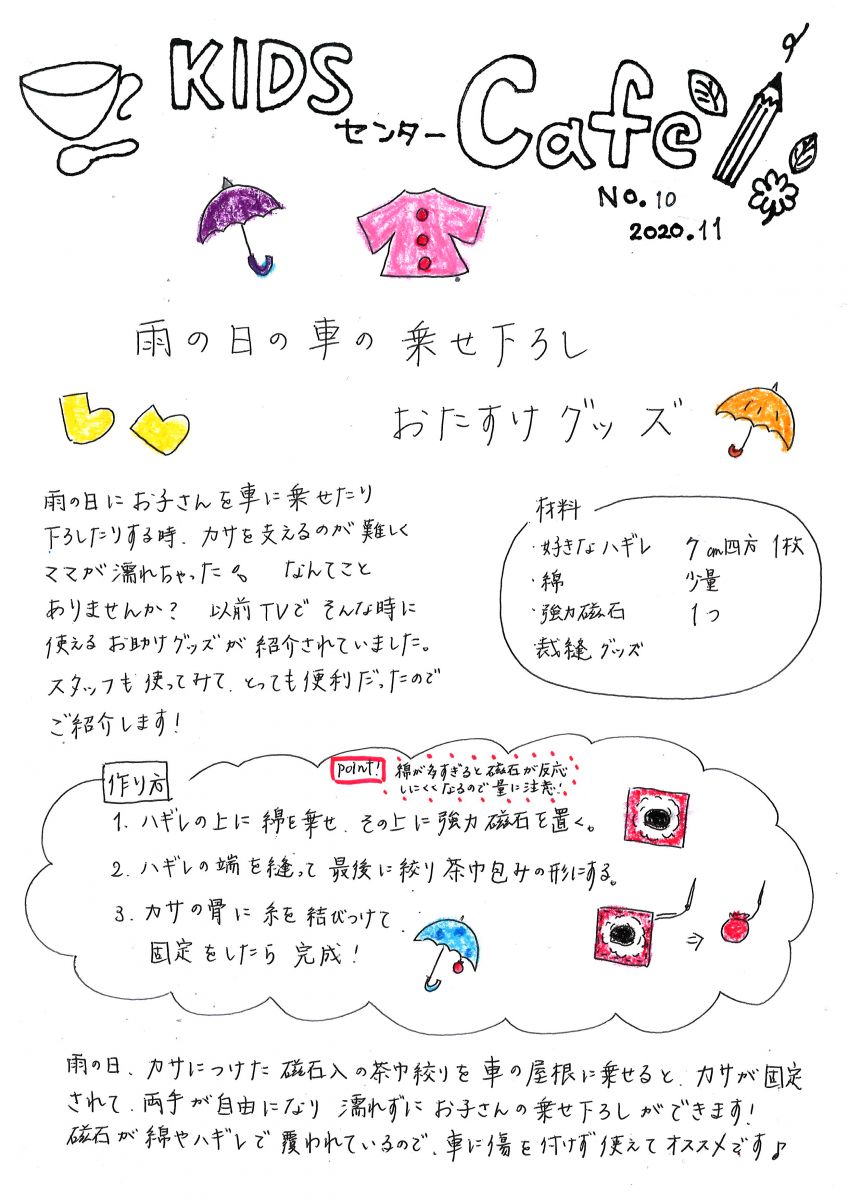 KIDS
センター Cafe
No.10
2020.11
雨の日の車の乗せ下ろし
おたすけグッズ
雨の日にお子さんを車に乗せたり
下ろしたりする時、カサを支えるのが難しく
ママが濡れちゃった。なんてこと
ありませんか? 以前TVでそんな時に
使えるお助けグッズが紹介されていました。
スタッフも使ってみて、とっても便利だったので
ご紹介します!
材料
・好きなハギレ 7cm四方 1枚
・綿 少量
・強力磁石 1つ
・裁縫グッズ
作り方
point! 綿が多すぎると磁石が反応
しにくくなるので量に注意!
1. ハギレの上に綿を乗せ、その上に強力磁石を置く。
2. ハギレの端を縫って最後に絞り茶巾包みの形にする。
3. カサの骨に糸を結びつけて、
固定をしたら完成!
雨の日、カサにつけた磁石入の茶巾絞りを車の屋根に乗せると、カサが固定
されて、両手が自由になり濡れずにお子さんの乗せ下ろしができます!
磁石が綿やハギレで覆われているので、車に傷を付けず使えてオススメです♪